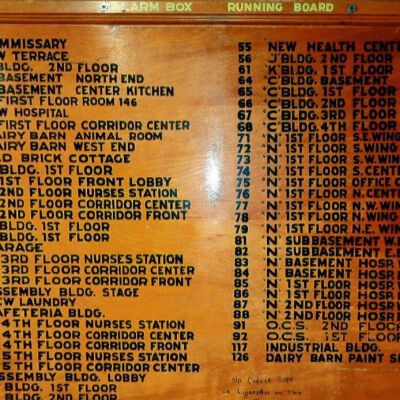 ALARM BOX RUNNING BOARD
MMISSARY
W TERRACE
BLDG. 2ND FLOOR
BASEMENT NORTH END
BASEMENT CENTER KITCHEN
FIRST FLOOR ROOM 146
W HOSPITAL
FIRST FLOOR CORRIDOR CENTER
AIRY BARN ANIMAL ROOM
AIRY BARN WEST END
LD BRICK COTTAGE
BLDG. 1ST FLOOR
1ST FLOOR FRONT LOBBY
2ND FLOOR NURSES STATION
2ND FLOOR CORRIDOR CENTER
2ND FLOOR CORRIDOR FRONT
BLDG. 1ST FLOOR
BLDG. 2ND FLOOR
ARAGE
3RD FLOOR NURSES STATION
3RD FLOOR CORRIDOR CENTER
3RD FLOOR CORRIDOR FRONT
SSEMBLY BLDG. STAGE
EW LAUNDRY
AFETERIA BLDG.
4TH FLOOR NURSES STATION
4TH FLOOR CORRIDOR CENTER
4TH FLOOR CORRIDOR FRONT
5TH FLOOR NURSES STATION
5TH FLOOR CORRIDOR CENTER
SSEMBLY BLDG. LOBBY
BLDG. 1ST FLOOR
BLDG. 2ND FLOOR
55 NEW HEALTH CENTE
56 "J" BLDG. 2ND FLOOR
61 "K" BLDG. 1ST FLOOR
64 "C" BLDG. BASEMENT
65 "C" BLDG. 1ST FLOOR
66 "C" BLDG. 2ND FLOOR
67 "C" BLDG. 3RD FLOOR
68 "C" BLDG. 4TH FLOOR
71 "N" 1ST FLOOR S.E. WING
72 "N" 1ST FLOOR S. WING
73 "N" 1ST FLOOR S.W. WING
74 "N" 1ST FLOOR S. CENT
75 "N" 1ST FLOOR OFFICE C
76 "N" 1ST FLOOR N. CENTE
77 "N" 1ST FLOOR N.W. WING
78 "N" 1ST FLOOR N. WING
79 "N" 1ST FLOOR N.E. WIN
81 "N" SUB BASEMENT W.E
82 "N" SUB BASEMENT E.E
83 "N" BASEMENT HOSP. W
84 "N" BASEMENT HOSP. E
85 "N" 1ST FLOOR HOSP. W
86 "N" 1ST FLOOR HOSP. E
87 "N" 2ND FLOOR HOSP. W
88 "N" 2ND FLOOR HOSP. E
91 O.C.S. 2ND FLOOR
92 O.C.S. 1ST FLOOR
117 INDUSTRIAL BLDG.
126 DAIRY BARN PAINT S
NO COFFEE CUPS